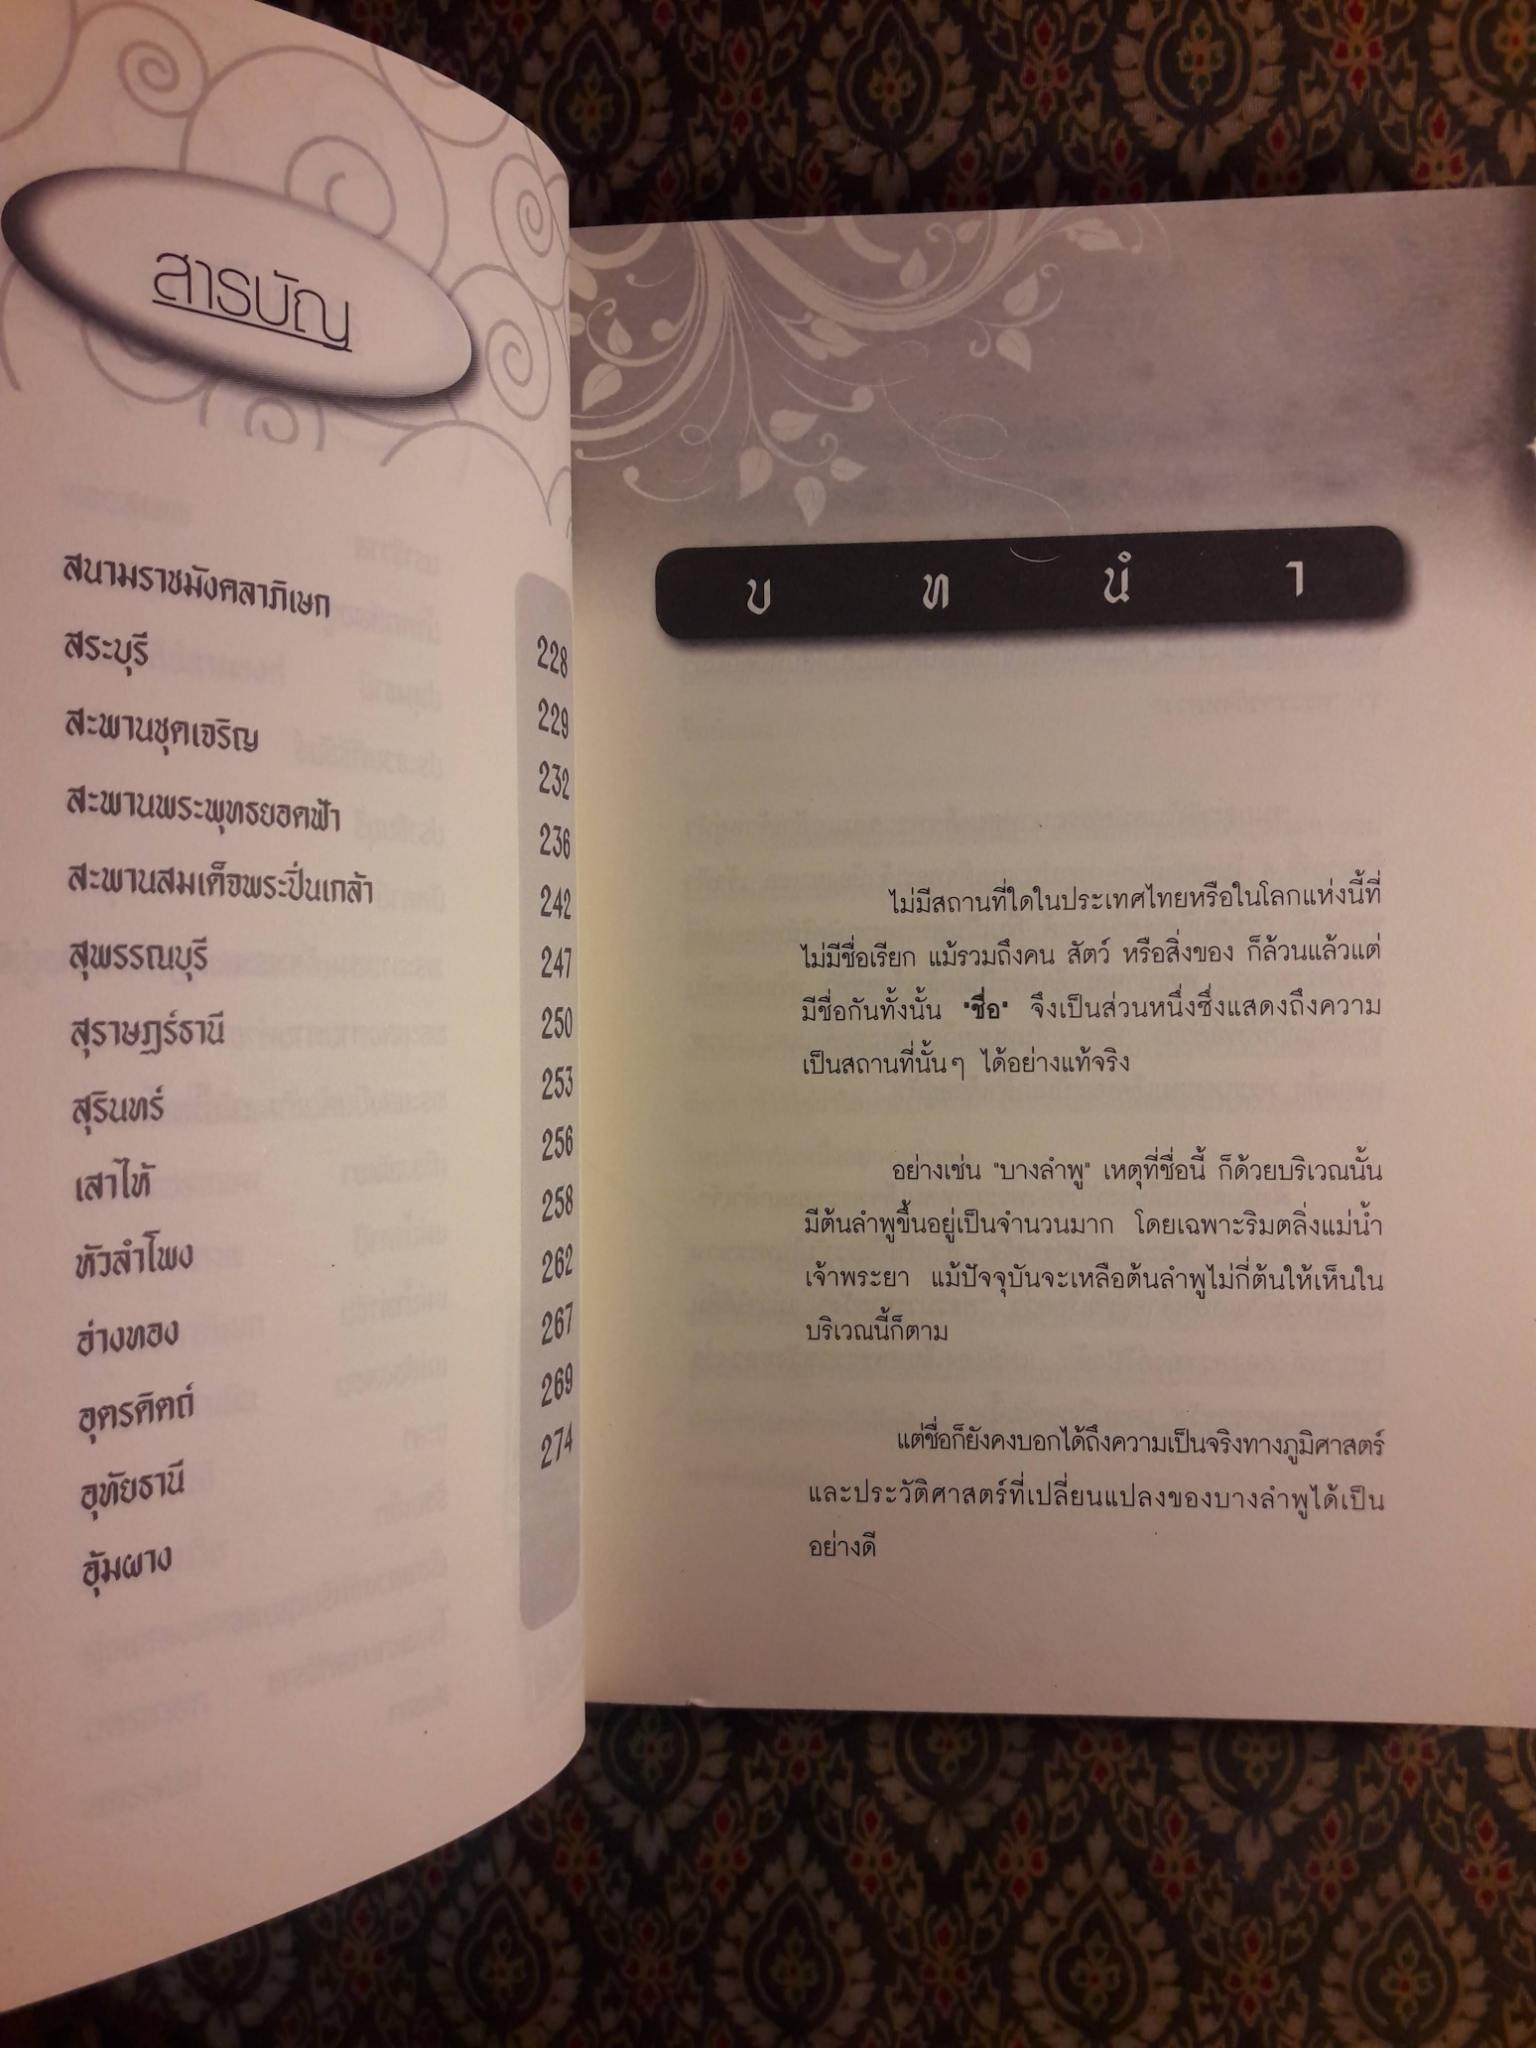 สารบัญ
สนามราชมังคลาภิเษก 228
สระบุรี 229
สะพานชุดเจริญ 232
สะพานพระพุทธยอดฟ้า 236
สะพานสมเด็จพระปิ่นเกล้า 242
สุพรรณบุรี 247
สุราษฎร์ธานี 250
สุรินทร์ 253
เสาไห้ 256
หัวลำโพง 258
อ่างทอง 262
อุตรดิตถ์ 267
อุทัยธานี 269
อุ้มผาง 274
บทนำ
ไม่มีสถานที่ใดในประเทศไทยหรือในโลกแห่งนี้ที่
ไม่มีชื่อเรียก แม้รวมถึงคน สัตว์ หรือสิ่งของ ก็ล้วนแล้วแต่
มีชื่อกันทั้งนั้น "ชื่อ" จึงเป็นส่วนหนึ่งซึ่งแสดงถึงความ
เป็นสถานที่นั้นๆ ได้อย่างแท้จริง
อย่างเช่น "บางลำพู" เหตุที่ชื่อนี้ ก็ด้วยบริเวณนั้น
มีต้นลำพูขึ้นอยู่เป็นจำนวนมาก โดยเฉพาะริมตลิ่งแม่น้ำ
เจ้าพระยา แม้ปัจจุบันจะเหลือต้นลำพูไม่กี่ต้นให้เห็นใน
บริเวณนี้ก็ตาม
แต่ชื่อก็ยังคงบอกได้ถึงความเป็นจริงทางภูมิศาสตร์
และประวัติศาสตร์ที่เปลี่ยนแปลงของบางลำพูได้เป็น
อย่างดี